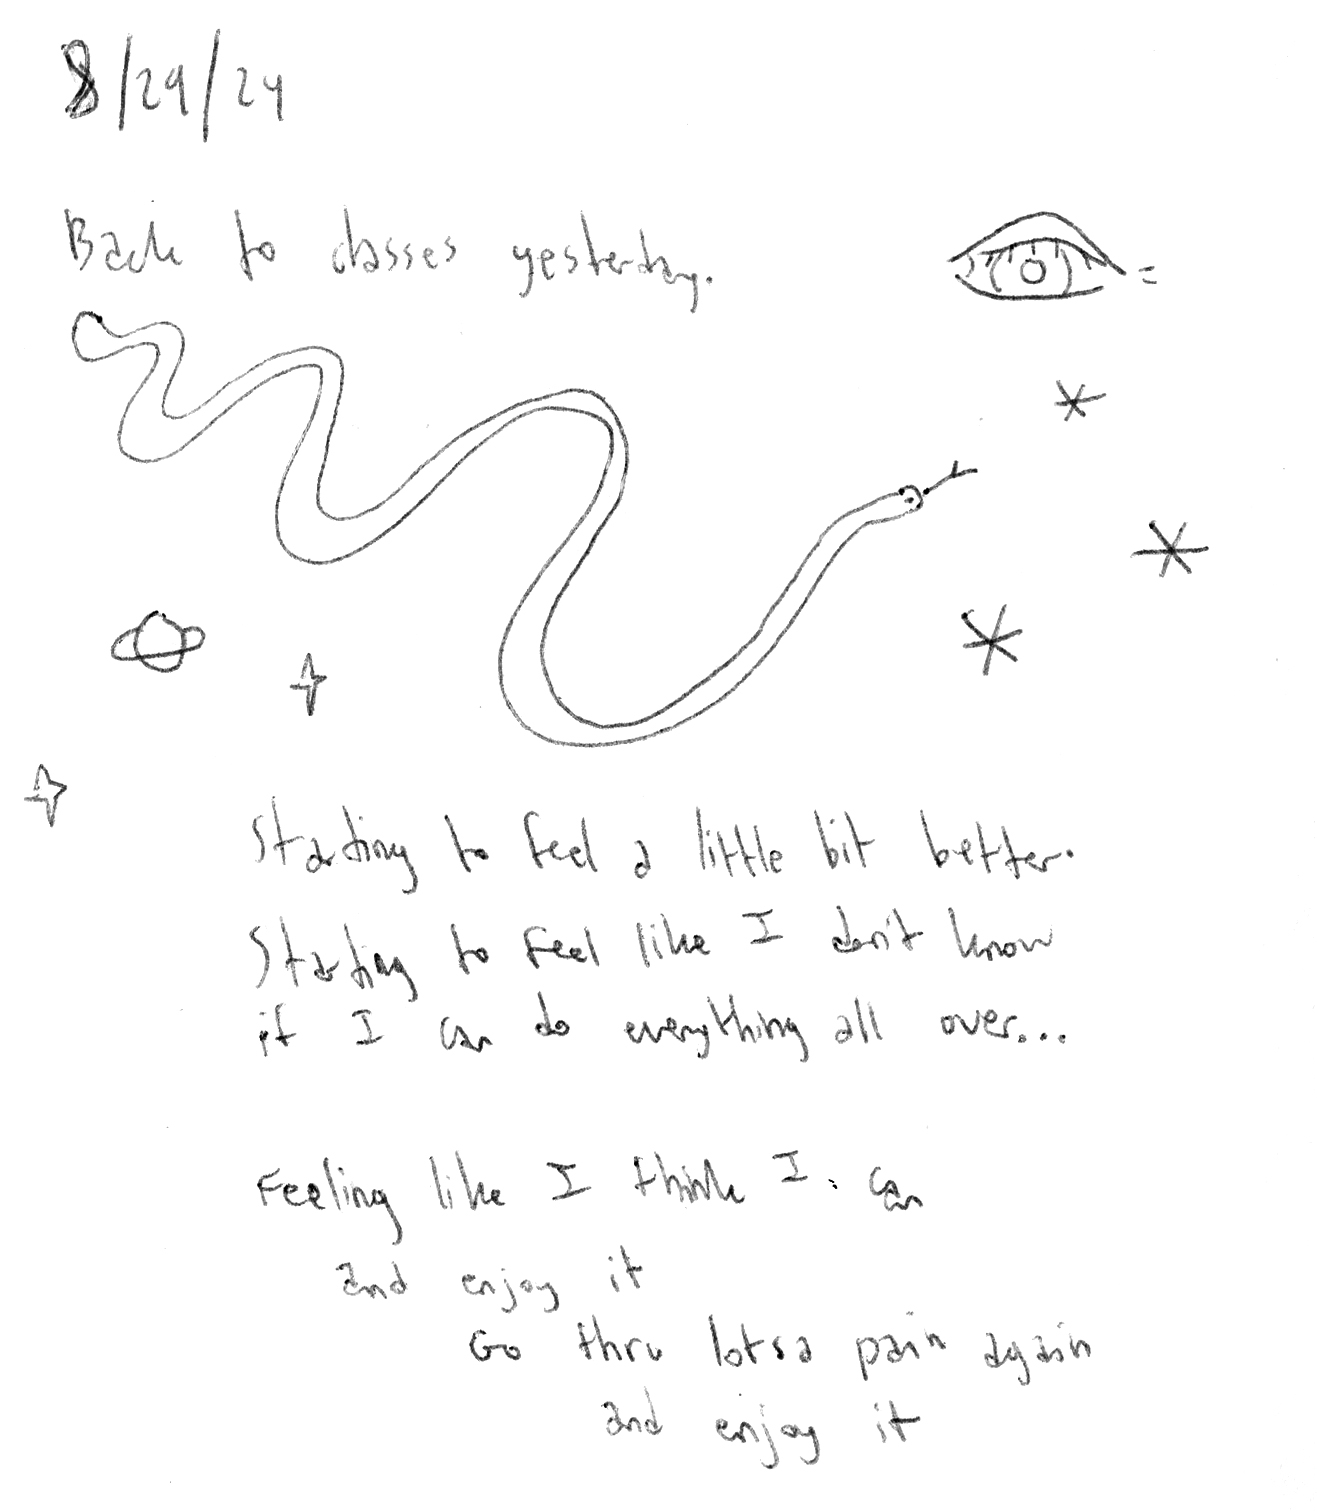 8/29/24
Back to classes yesterday.
Starting to feel a little bit better.
Starting to feel like I don't know
if I can do everything all over...
Feeling like I think I can
and enjoy it
Go thru lotsa pain again
and enjoy it